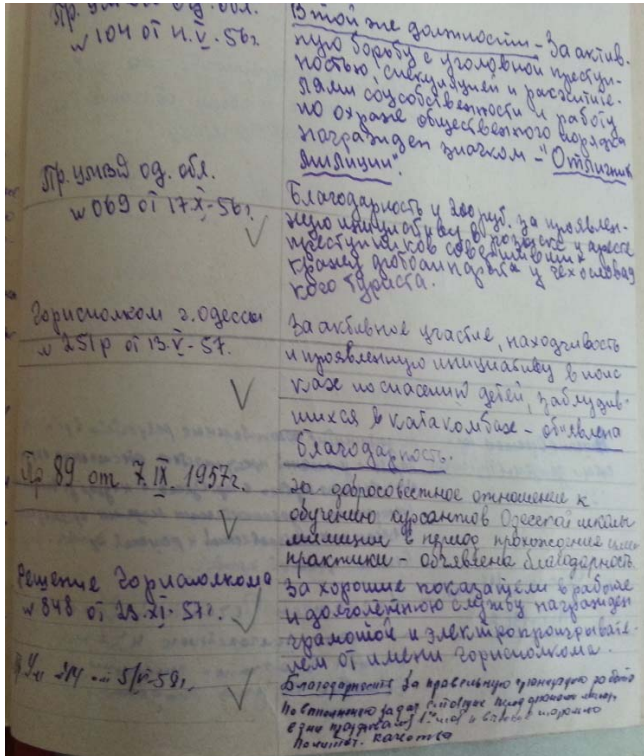 Пр. УМВД од. обл.
№ 104 от 11.V.56г.
В той же должности - За актив-
ную борьбу с уголовной преступ-
ностью, спекуляцией и расхитите-
лями соцсобственности и работу
по охране общественного порядка
награжден значком - "Отличник
милиции".
Пр. УМВД од. обл.
№ 069 от 17.X.56г.
Благодарность и 200 руб. за проявлен-
ную инициативу в розыске и аресте
преступников совершивших
кражу фотоаппарата у чехословац
кого туриста.
Горисполком г. Одессы
№ 251р от 13.V-57.
За активное участие, находчивость
и проявленную инициативу в поис
ках по спасению детей, заблудив-
шихся в катакомбах - объявлена
благодарность.
Пр 89 от 7.IX.1957г.
За добросовестное отношение к
обучению курсантов Одесской школы
милиции в период прохождения ими
практики - объявлена благодарность.
Решение Горисполкома
№ 848 от 23.XI-57г.
За хорошие показатели в работе
и долголетнюю службу награжден
грамотой и электропроигрывате-
лем от имени горисполкома.
Благодарность за правильную организацию работы
качества